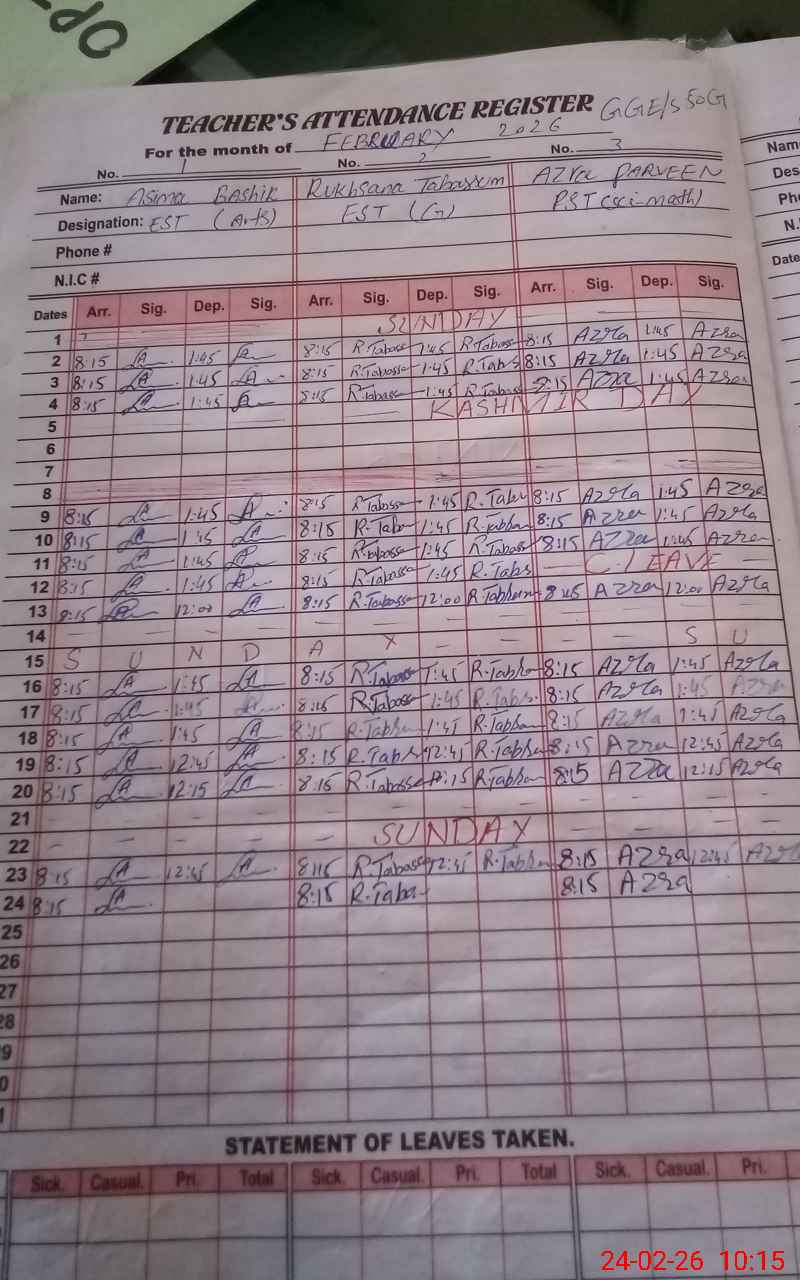 TEACHER'S ATTENDANCE REGISTER GGE/S 50G
For the month of FEBRUARY 2026
No. 1 No. 2 No. 3
Name: Asima Bashir Rukhsana Tabassum AZRA PARVEEN
Designation: EST (Arts) EST (G) PST (sci-math)
Phone #
N.I.C #
Dates Arr. Sig. Dep. Sig. Arr. Sig. Dep. Sig. Arr. Sig. Dep. Sig.
1 SUNDAY
2 8:15 1:45 8:15 R.Tabass 1:45 R.Tabass 8:15 AZRA 1:45 AZRA
3 8:15 1:45 8:15 R.Tabass 1:45 R.Tabs 8:15 AZRA 1:45 AZRA
4 8:15 1:45 8:15 R.Tabass 1:45 R.Tabass 8:15 AZRA 1:45 AZRA
5 KASHMIR DAY
6
7
8
9 8:15 1:45 8:15 R.Tabass 1:45 R.Tabs 8:15 AZRA 1:45 AZRA
10 8:15 1:45 8:15 R.Tab 1:45 8:15 AZRA 1:45 AZRA
11 8:15 1:45 8:15 1:45 R.Tabass 8:15 AZRA 1:45 AZRA
12 8:15 1:45 8:15 R.Tabass 1:45 R.Tabs C.LEAVE
13 8:15 12:00 8:15 R.Tabass 12:00 8:15 AZRA 12:00 AZRA
14
15 S U N D A Y S U
16 8:15 1:45 8:15 R.Tabass 1:45 8:15 AZRA 1:45 AZRA
17 8:15 1:45 8:15 R.Tabass 1:45 R.Tabs 8:15 AZRA 1:45 AZRA
18 8:15 1:45 8:15 1:45 8:15 AZRA 1:45 AZRA
19 8:15 12:45 8:15 R.Tabs 12:45 8:15 AZRA 12:45 AZRA
20 8:15 12:15 8:15 R.Tabass 12:15 8:15 AZRA 12:15 AZRA
21
22 SUNDAY
23 8:15 12:45 8:15 R.Tabass 12:45 8:15 AZRA 12:45 AZRA
24 8:15 8:15 R.Taba 8:15 AZRA
25
26
27
28
9
0
1
STATEMENT OF LEAVES TAKEN.
Sick. Casual. Pri. Total Sick. Casual. Pri. Total Sick. Casual. Pri.
24-02-26 10:15